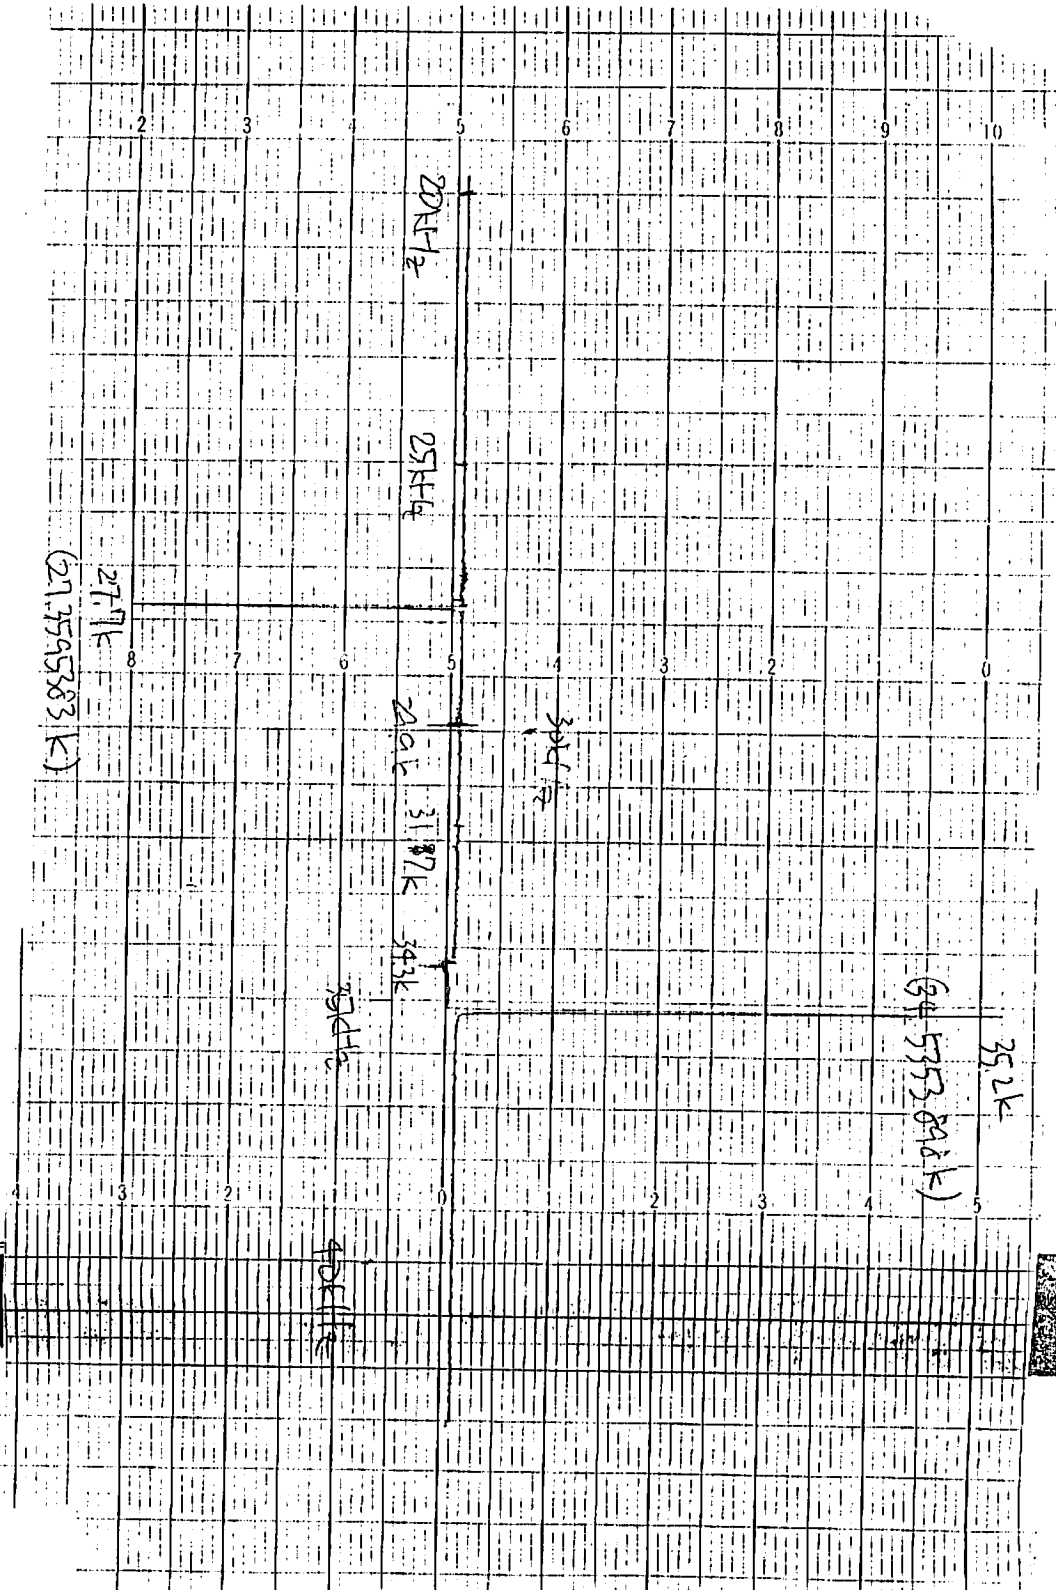 2 3 4 5 6 7 8 9 10
20kHz
25kHz
27.7k
(27.3595383k)
8 7 6 5 4 3 2 0
30kHz
29.9k
34.3k
35kHz
35.2k
4 3 2 0 2 3 4 5
40kHz